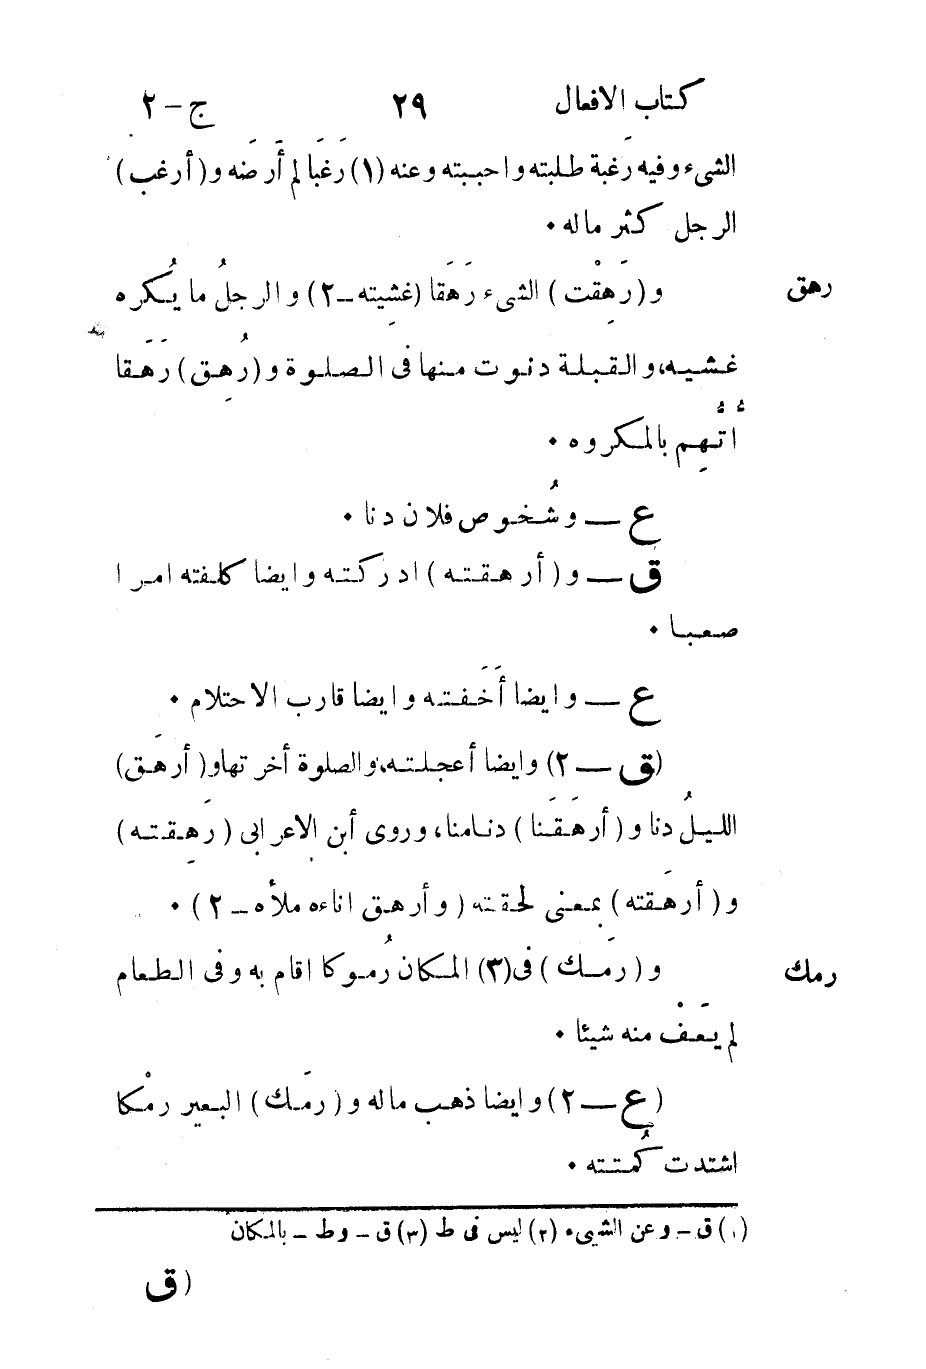 كتاب الافعال ٢٩ ج – ٢
الشىء وفيه رَغبة طلبته واحببته وعنه (١) رَغَبا لم أَرضَه و(أرغَب)
الرجل كثر ماله •
رهق و(رَهِقْت) الشىء رَهَقا (غشِيته – ٢) والرجلُ ما يُكره
غشيه، والقبلة دنوت منها فى الصلوة و(رُهِق) رَهَقا
اُتُّهِم بالمكروه •
ع – وشُخوص فلان دنا •
ق – و(أرهقته) ادركته وايضا كلفته امرا
صعبا •
ع – وايضا أَخَفته وايضا قارب الاحتلام •
(ق – ٢) وايضا أعجلته، والصلوة أخرتها و(أرهَق)
الليلُ دنا و(أرهَقَنا) دنا منا، وروى أبن الاعرابى (رَهِقته)
و(أرهَقته) بمعنى لحقته (وأرهق اناءه ملأه – ٢) •
رمك و(رَمَك) فى (٣) المكان رُموكا اقام به وفى الطعام
لم يَعَفْ منه شيئا •
(ع – ٢) وايضا ذهب ماله و(رمَك) البعير رمْكا
اشتدت كُمتته •
(١) ق – وعن الشىء (٢) ليس فى ط (٣) ق – وط – بالمكان
(ق